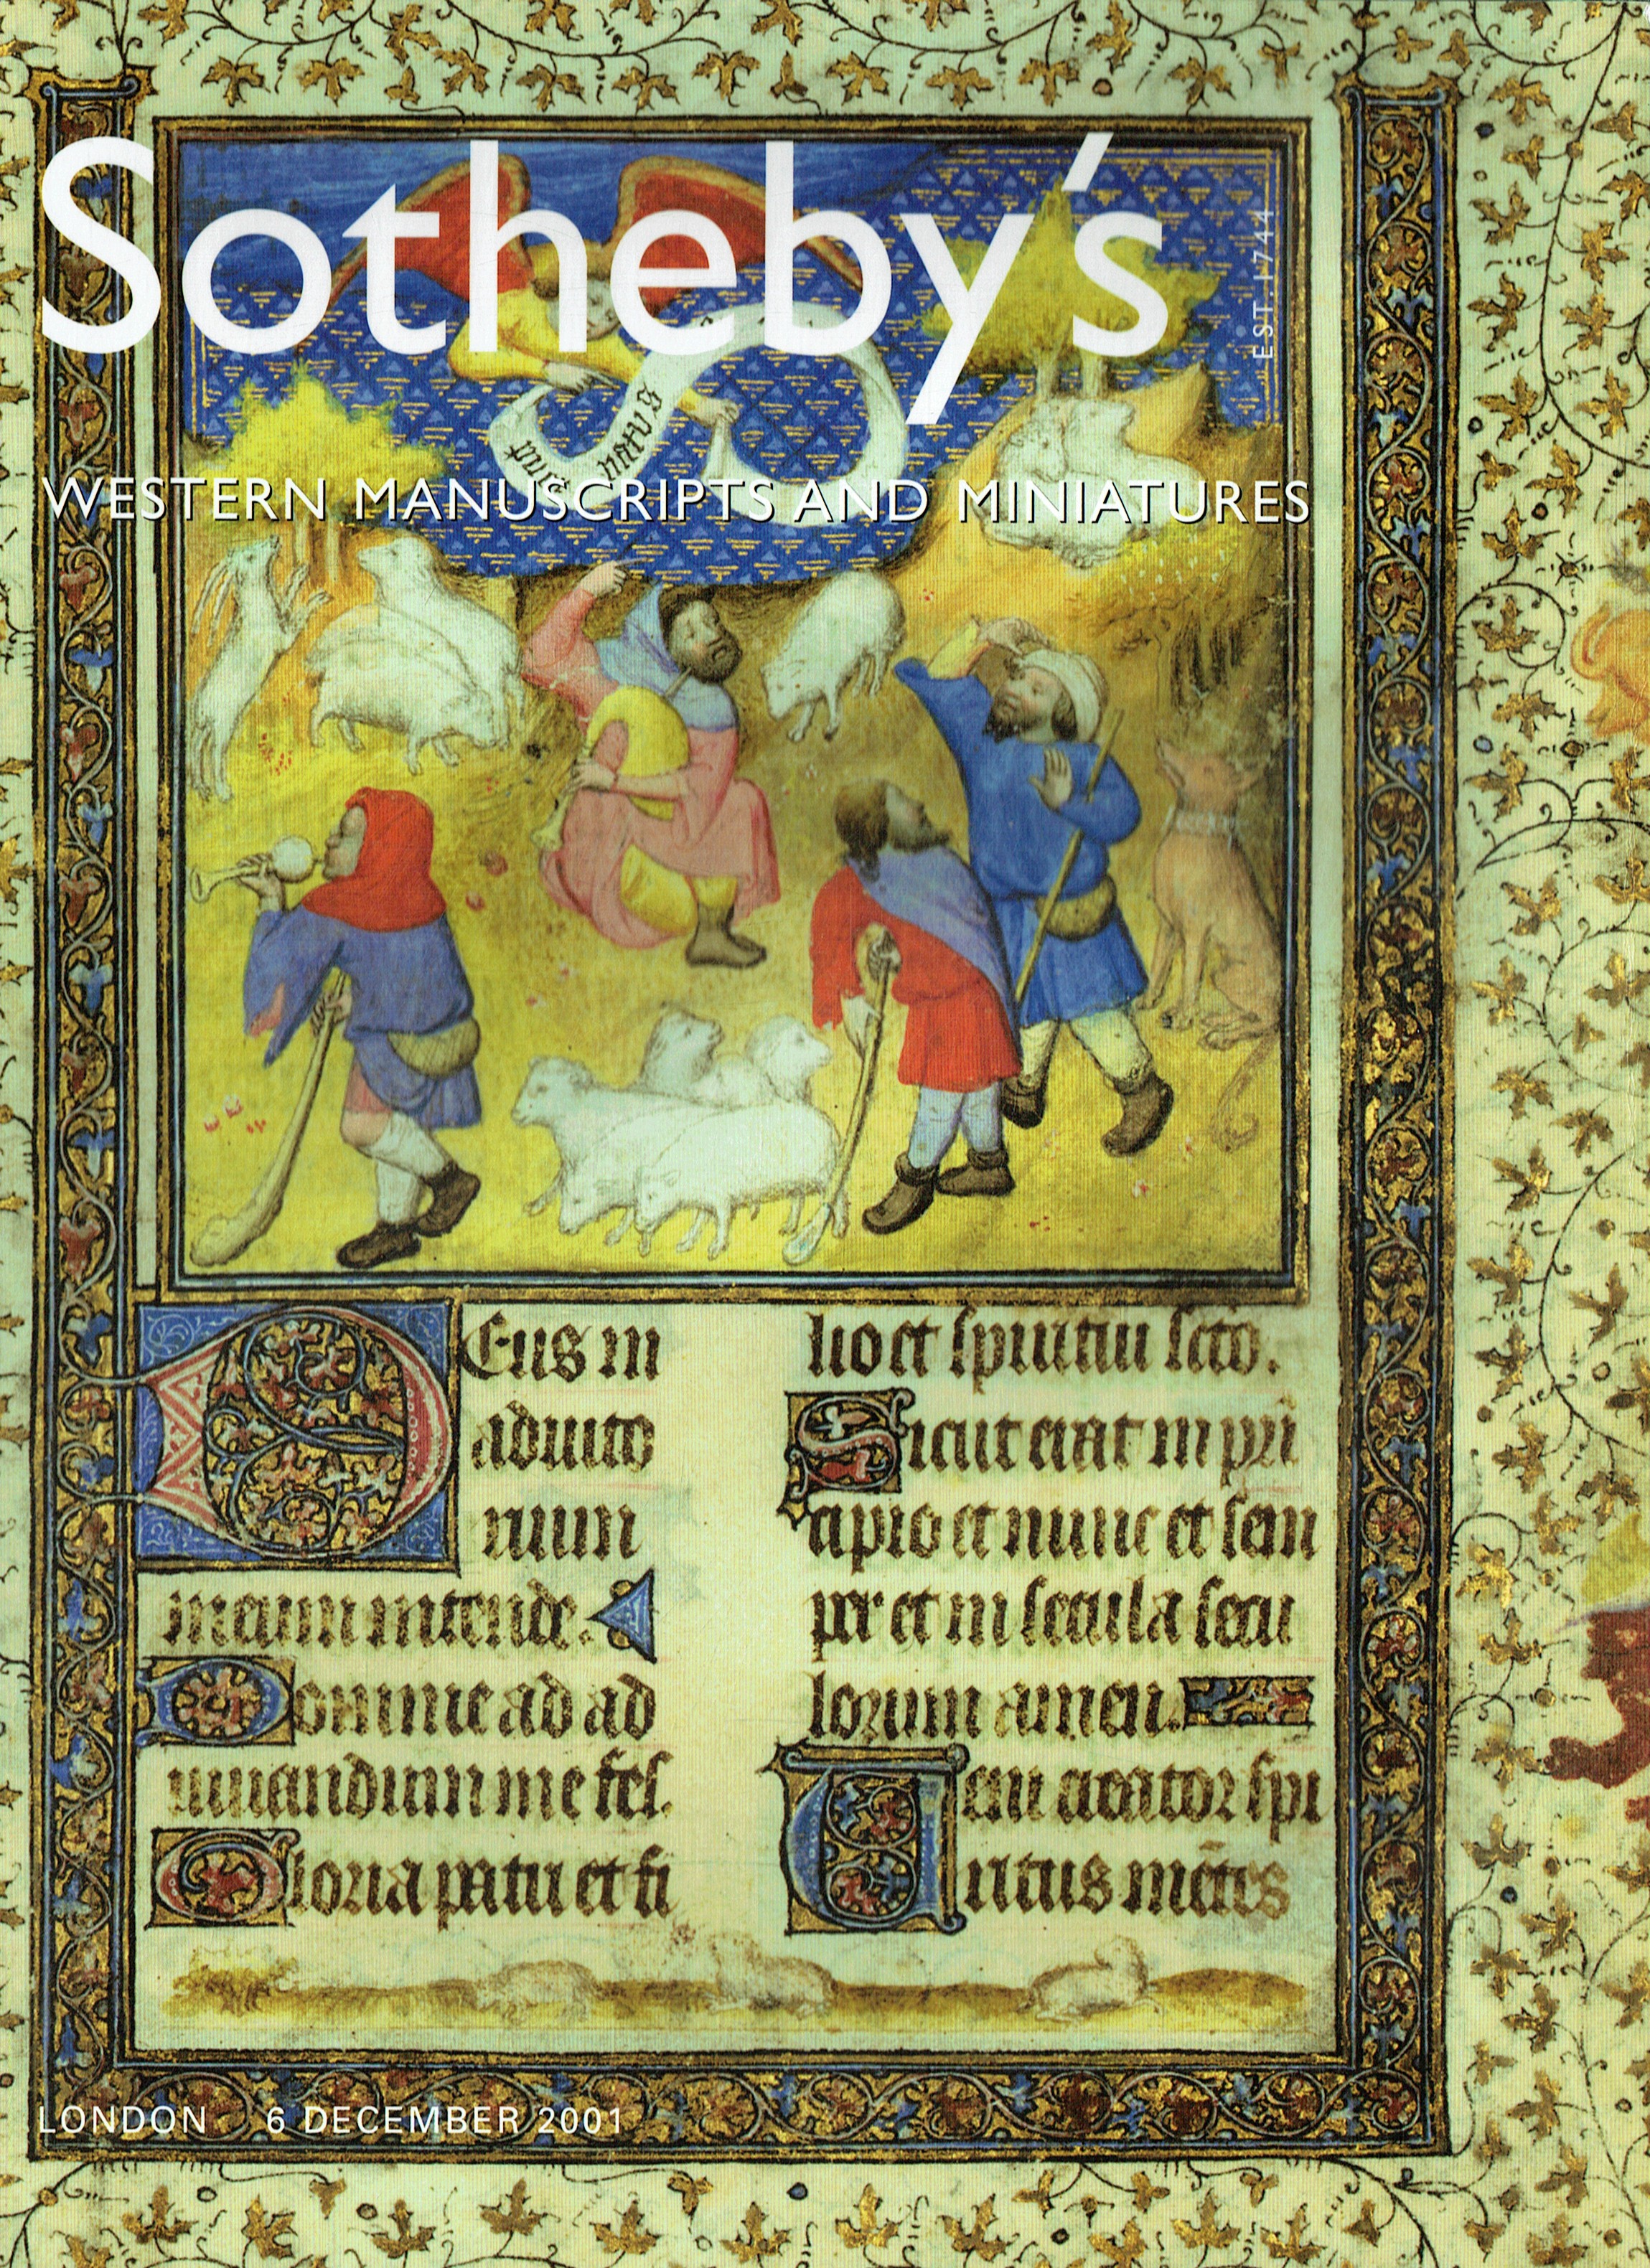 Sotheby's
EST. 1744
puer natus
WESTERN MANUSCRIPTS AND MINIATURES
Deus in
adiuto
rium
meum intende.
Domine ad ad
iuuandum me fes.
Gloria patri et fi
lio et spiritui scto.
Sicut erat in pri
cipio et nunc et sem
per et in secula secu
lorum amen.
Ueni creator spi
ritus mētes
LONDON 6 DECEMBER 2001